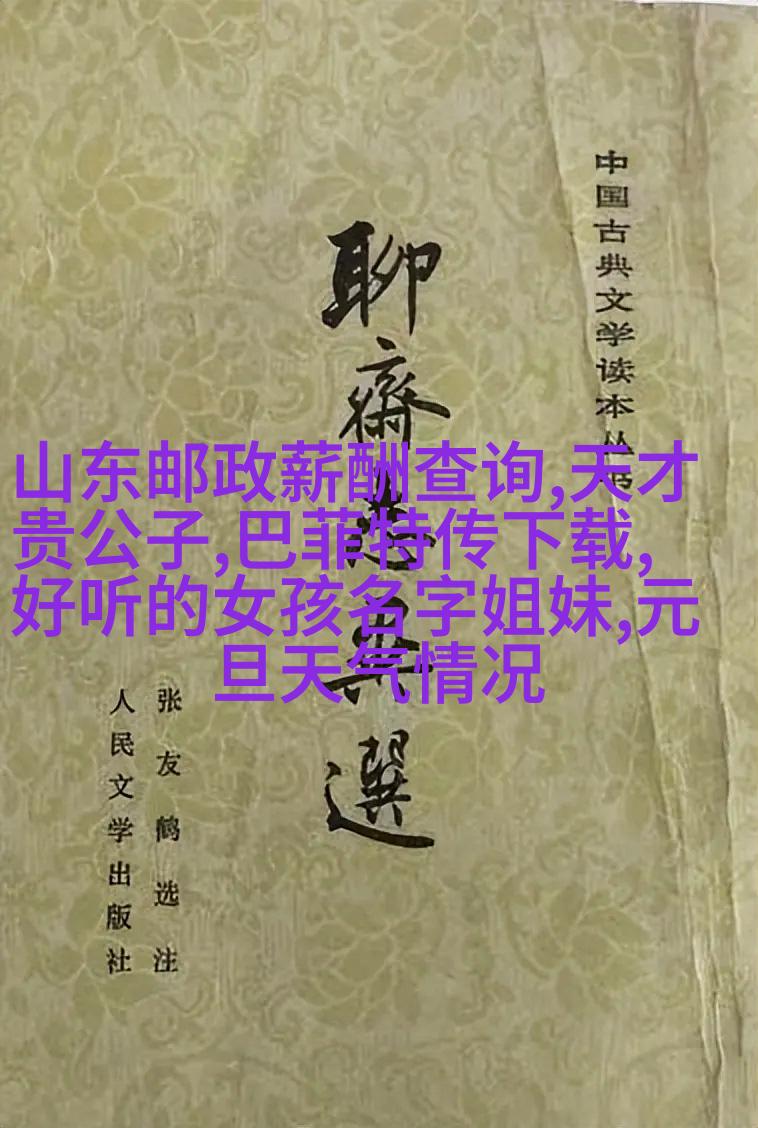 中国古典文学读本丛书
聊齋志異選
山东邮政薪酬查询,天才
贵公子,巴菲特传下载,
好听的女孩名字姐妹,元
旦天气情况
张友鹤选注
人民文学出版社